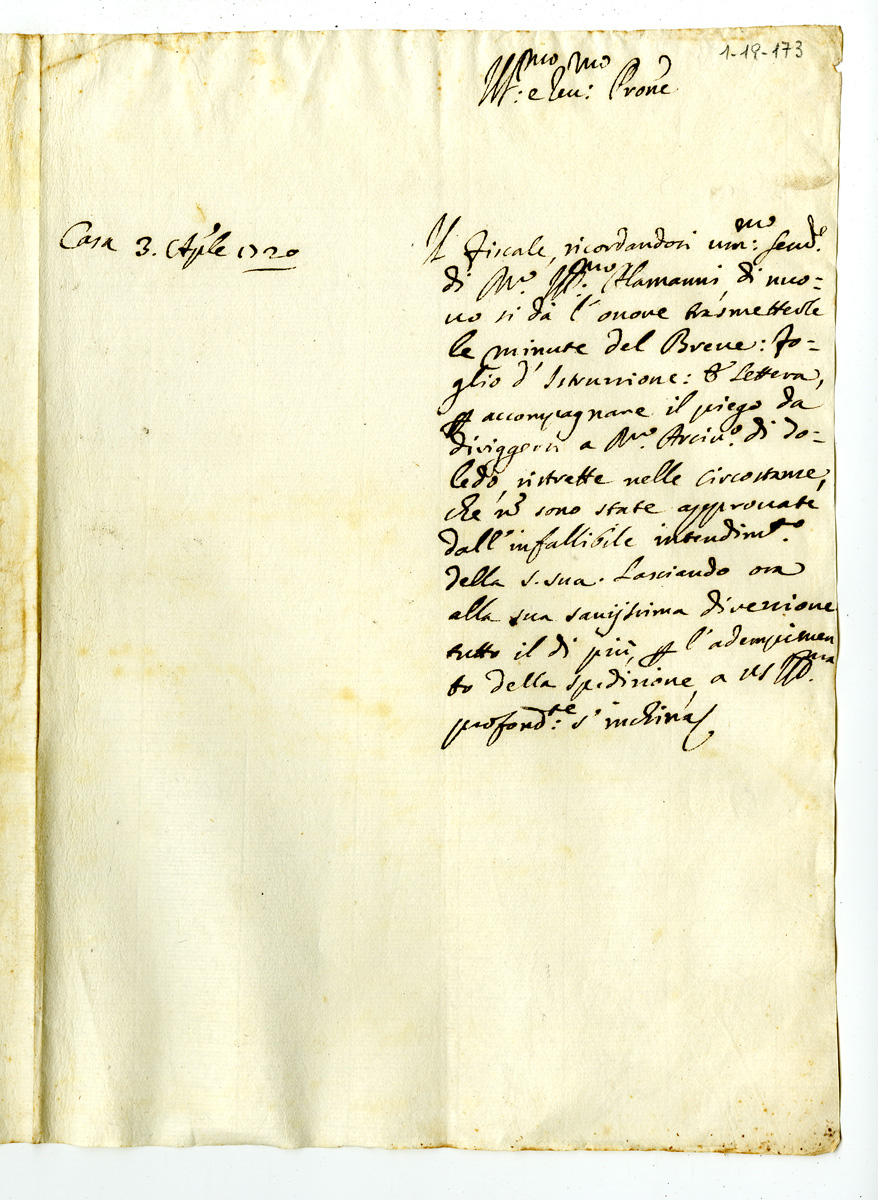 1-19-173
Ill:mo e Reu:mo Prone
Casa 3. Aple 1720
Il Fiscale, ricordandosi um:mo seruo.
di Mr. Ill.mo Alamanni, di nuo=
uo si dà l'onore trasmetterle
le minute del Breue: Fo=
glio d'Istruzzione: & Lettera,
p accompagnare il piego da
diriggersi a Mr. Arciuo. di To=
ledo, ristrette nelle circostanze,
che ne sono state approuate
dall'infallibile intendimto.
della S. Sua. Lasciando ora
alla sua sauijssima direzzione
tutto il di più, p l'adempimen
to della spedizione, a VS Ill.ma
profond:te s'inchina